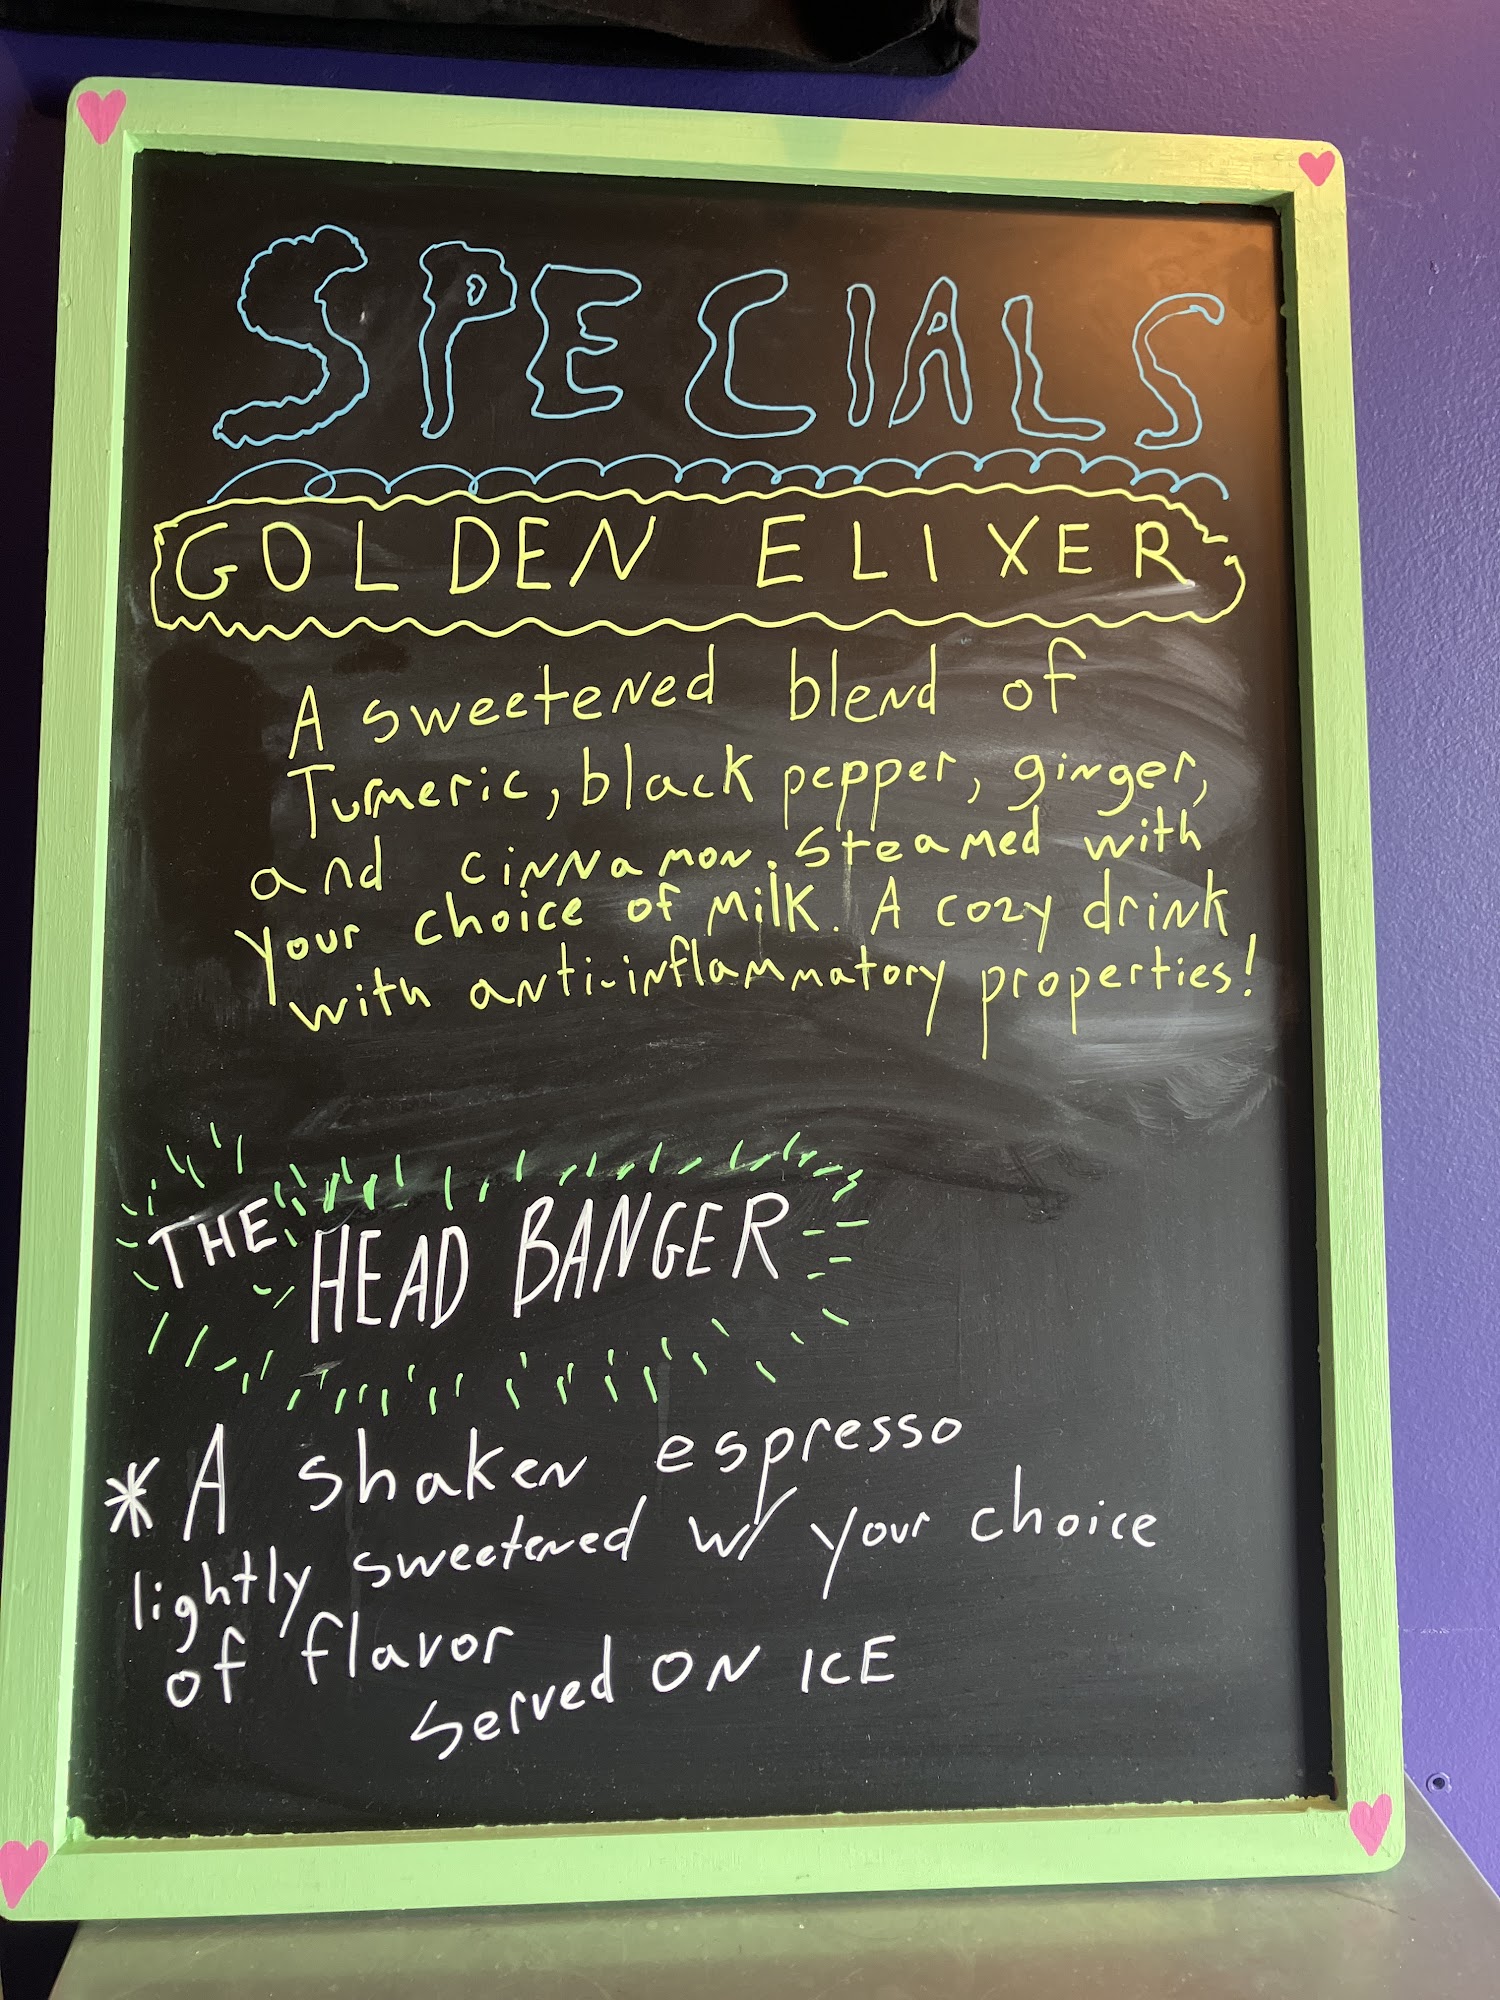 SPECIALS
GOLDEN ELIXER
A sweetened blend of
Turmeric, black pepper, ginger,
and cinnamon. Steamed with
your choice of milk. A cozy drink
with anti-inflammatory properties!
THE HEAD BANGER
* A shaken espresso
lightly sweetened w/ your choice
of flavor
served ON ICE